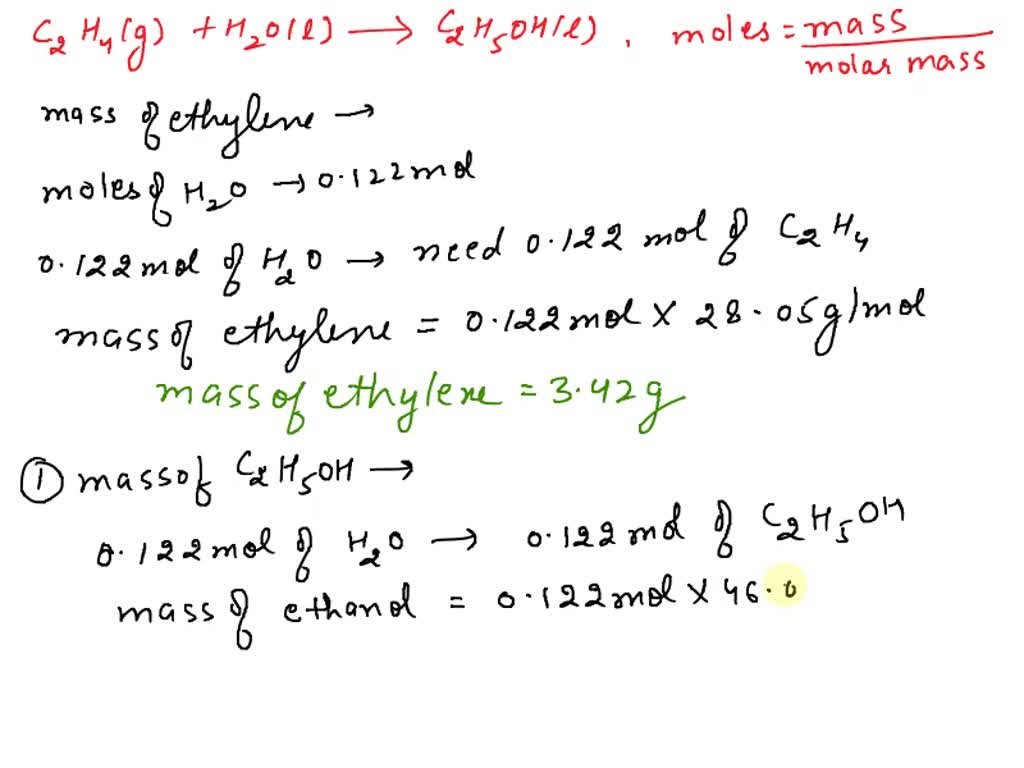 C₂H₄(g) + H₂O(l) → C₂H₅OH(l), moles = mass / molar mass
mass of ethylene →
moles of H₂O → 0.122 mol
0.122 mol of H₂O → need 0.122 mol of C₂H₄
mass of ethylene = 0.122 mol × 28.05 g/mol
mass of ethylene = 3.42 g
① mass of C₂H₅OH →
0.122 mol of H₂O → 0.122 mol of C₂H₅OH
mass of ethanol = 0.122 mol × 46.0